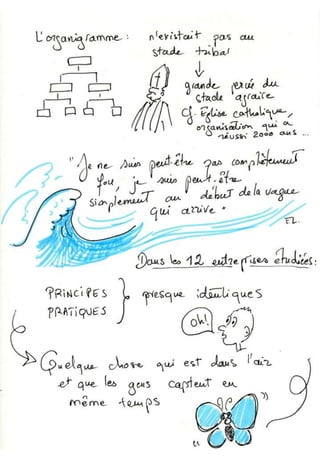 L'organigramme : n'existait pas au
stade tribal
grande percée du
stade agraire
Cf. Église catholique,
organisation qui a
réussi 2000 ans ...
"Je ne suis peut-être pas complètement
fou, je suis peut-être
simplement au début de la vague
qui arrive"
FL.
Dans les 12 entreprises étudiées :
PRINCIPES
PRATIQUES
presque identiques
Oh!
Quelque chose qui est dans l'air
et que les gens captent en
même temps